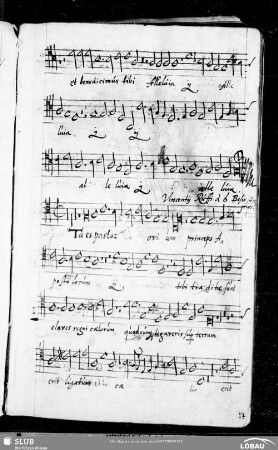 et benedicimus tibi Alleluia Alle
luia
al le luia alle luia
Vincenty Ruffi à 6
Tu es pastor ovi um princeps A,
postolorum tibi tradite sunt
claves regni cælorum, quodcunq ligaveris sup terram
erit ligatum cæ lis erit
SLUB
LOBAU